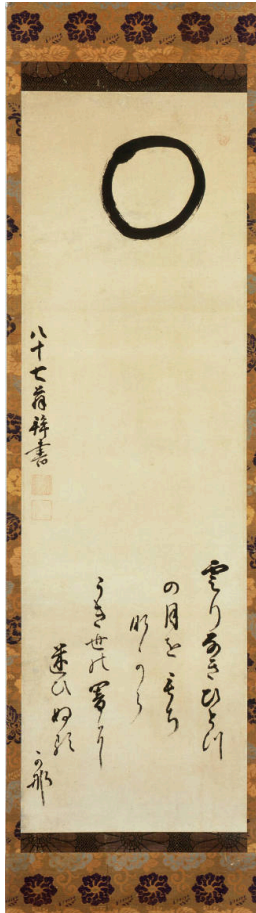 雲りなきひとつ
の月をもち
ながら
うき世の闇に
迷ひぬる
かな
八十七翁 書